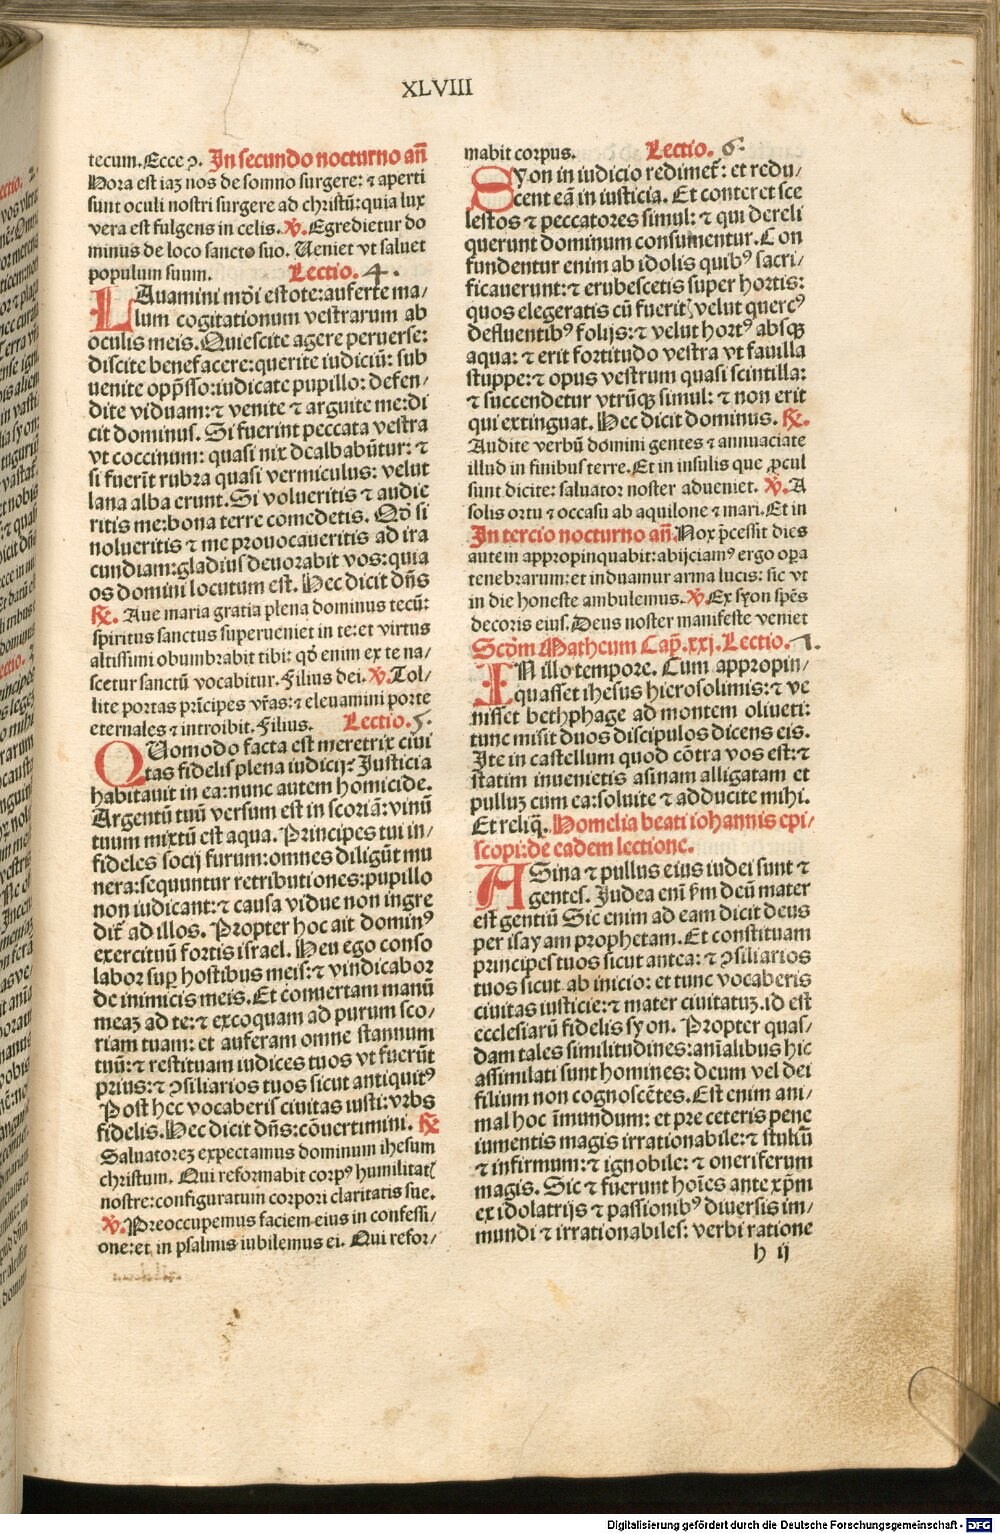 XLVIII
tecum. Ecce ꝯ. In secundo nocturno añ
Hora est iaꝫ nos de somno surgere: ⁊ aperti
sunt oculi nostri surgere ad christū: quia lux
vera est fulgens in celis. ℣. Egredietur do
minus de loco sancto suo. Ueniet vt saluet
populum suum. Lectio. 4.
LAuamini mōi estote: auferte ma/
lum cogitationum vestrarum ab
oculis meis. Quiescite agere peruerse:
discite benefacere: querite iudiciū: sub
uenite opp̄sso: iudicate pupillo: defen/
dite viduam: ⁊ venite ⁊ arguite me: di
cit dominus. Si fuerint peccata vestra
vt coccinum: quasi nix dealbabūtur: ⁊
si fuerīt rubra quasi vermiculus: velut
lana alba erunt. Si volueritis ⁊ audie
ritis me: bona terre comedetis. Qō si
nolueritis ⁊ me prouocaueritis ad ira
cundiam: gladius deuorabit vos: quia
os domini locutum est. Hec dicit dn̄s
℟. Aue maria gratia plena dominus tecū:
spiritus sanctus superueniet in te: et virtus
altissimi obumbrabit tibi: qō enim ex te na/
scetur sanctū vocabitur. Filius dei. ℣. Tol/
lite portas prīncipes vr̄as: ⁊ eleuamini porte
eternales ⁊ introibit. Filius. Lectio. 5.
QUomodo facta est meretrix ciui
tas fidelis plena iudicij? Iusticia
habitauit in ea: nunc autem homicide.
Argentū tuū versum est in scoriā: vinū
tuum mixtū est aqua. Principes tui in/
fideles socij furum: omnes diligūt mu
nera: sequuntur retributiones: pupillo
non iudicant: ⁊ causa vidue non ingre
dit̄ ad illos. Propter hoc ait dominꝰ
exercituū fortis israel. Heu ego conso
labor suꝑ hostibus meis: ⁊ vindicabor
de inimicis meis. Et conuertam manū
meaꝫ ad te: ⁊ excoquam ad purum sco/
riam tuam: et auferam omne stannum
tuū: ⁊ restituam iudices tuos vt fuerūt
prius: ⁊ ꝯsiliarios tuos sicut antiquitꝰ
Post hec vocaberis ciuitas iusti: vrbs
fidelis. Hec dicit dn̄s: cōuertimini. ℟
Saluatoreꝫ expectamus dominum ihesum
christum. Qui reformabit corpꝰ humilitatꝭ
nostre: configuratum corpori claritatis sue.
℣. Preoccupemus faciem eius in confessi/
one: et in psalmis iubilemus ei. Qui refor/
mabit corpus. Lectio. 6.
SYon in iudicio redimet̄: et redu/
cent eā in iusticia. Et conteret sce
lestos ⁊ peccatores simul: ⁊ qui dereli
querunt dominum consumentur. Con
fundentur enim ab idolis quibꝰ sacri/
ficauerunt: ⁊ erubescetis super hortis:
quos elegeratis cū fueritꝭ velut quercꝰ
defluentibꝰ folijs: ⁊ velut hortꝰ absqꝫ
aqua: ⁊ erit fortitudo vestra vt fauilla
stuppe: ⁊ opus vestrum quasi scintilla:
⁊ succendetur vtrūqꝫ simul: ⁊ non erit
qui extinguat. Hec dicit dominus. ℟.
Audite verbū domini gentes ⁊ annuaciate
illud in finibus terre. Et in insulis que ꝓcul
sunt dicite: saluator noster adueniet. ℣. A
solis ortu ⁊ occasu ab aquilone ⁊ mari. Et in
In tercio nocturno añ. Nox p̄cessit dies
autem appropinquabit: abijciamꝰ ergo oꝑa
tenebrarum: et induamur arma lucis: sic vt
in die honeste ambulemus. ℣. Ex syon spēs
decoris eius. Deus noster manifeste veniet
Scd̄m Matheum Cap̄. xxj. Lectio. 7.
IN illo tempore. Cum appropin/
quasset ihesus hierosolimis: ⁊ ve
nisset bethphage ad montem oliueti:
tunc misit duos discipulos dicens eis.
Ite in castellum quod cōtra vos est: ⁊
statim inuenietis asinam alligatam et
pulluꝫ cum ea: soluite ⁊ adducite mihi.
Et reliq̄. Homelia beati iohannis epi/
scopi: de eadem lectione.
ASina ⁊ pullus eius iudei sunt ⁊
gentes. Judea eni ẜm deū mater
est gentiū Sic enim ad eam dicit deus
per isayam prophetam. Et constituam
principes tuos sicut antea: ⁊ ꝯsiliarios
tuos sicut ab inicio: et tunc vocaberis
ciuitas iusticie: ⁊ mater ciuitatuꝫ. id est
ecclesiarū fidelis syon. Propter quas/
dam tales similitudines: anīalibus hic
assimilati sunt homines: deum vel dei
filium non cognoscētes. Est enim ani/
mal hoc īmundum: et pre ceteris pene
iumentis magis irrationabile: ⁊ stultū
⁊ infirmum: ⁊ ignobile: ⁊ oneriferum
magis. Sic ⁊ fuerunt hoīes ante xp̄m
ex idolatrijs ⁊ passionibꝰ diuersis im/
mundi ⁊ irrationabiles: verbi ratione
h ij
Digitalisierung gefördert durch die Deutsche Forschungsgemeinschaft - DFG